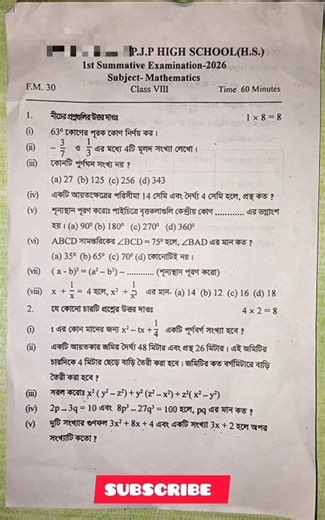 P.J.P HIGH SCHOOL(H.S.)
1st Summative Examination-2026
Subject- Mathematics
F.M. 30 Class VIII Time 60 Minutes
1. নীচের প্রশ্নগুলির উত্তর দাওঃ 1 × 8 = 8
(i) 63° কোণের পূরক কোণ নির্ণয় কর।
(ii) - 3/7 ও 1/3 এর মধ্যে 4টি মূলদ সংখ্যা লেখো।
(iii) কোনটি পূর্ণঘন সংখ্যা নয় ?
(a) 27 (b) 125 (c) 256 (d) 343
(iv) একটি আয়তক্ষেত্রের পরিসীমা 14 সেমি এবং দৈর্ঘ্য 4 সেমি হলে, প্রস্থ কত ?
(v) শূন্যস্থান পূরণ করোঃ পাইচিত্রে বৃত্তকলাগুলি কেন্দ্রীয় কোণ ............ এর ভগ্নাংশ
হয়। (a) 90° (b) 180° (c) 270° (d) 360°
(vi) ABCD সামন্তরিকের ∠BCD = 75° হলে, ∠BAD এর মান কত ?
(a) 35° (b) 65° (c) 70° (d) কোনোটিই নয়।
(vii) ( a - b)³ = (a³ − b³) − ............. (শূন্যস্থান পূরণ করো)
(viii) x + 1/x = 4 হলে, x² + 1/x² এর মান- (a) 14 (b) 12 (c) 16 (d) 18
2. যে কোনো চারটি প্রশ্নের উত্তর দাওঃ 4 × 2 = 8
(i) t এর কোন মানের জন্য x² − tx + 1/4 একটি পূর্ণবর্গ সংখ্যা হবে ?
(ii) একটি আয়তকার জমির দৈর্ঘ্য 48 মিটার এবং প্রস্থ 26 মিটার। এই জমিটির
চারদিকে 4 মিটার ছেড়ে বাড়ি তৈরী করা হবে। জমিটির কত বর্গমিটারে বাড়ি
তৈরী করা হবে ?
(iii) সরল করোঃ x² ( y² − z²) + y² (z² − x²) + z² ( x² − y²)
(iv) 2p − 3q = 10 এবং 8p³ − 27q³ = 100 হলে, pq এর মান কত ?
(v) দুটি সংখ্যার গুণফল 3x² + 8x + 4 এবং একটি সংখ্যা 3x + 2 হলে অপর
সংখ্যাটি কতো ?
SUBSCRIBE